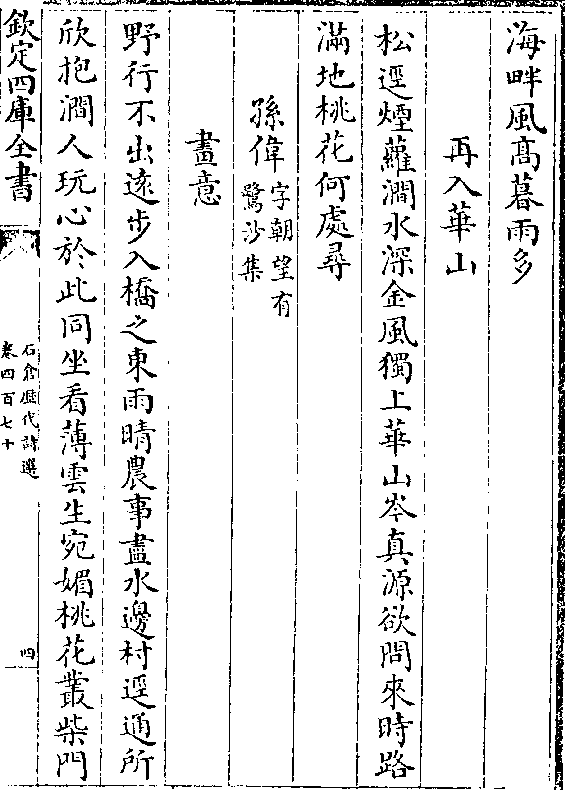 海畔風髙暮雨多
再入華山
松逕煙蘿澗水深金風獨上華山岑真源欲問來時路
滿地桃花何處尋
孫偉字朝望有
鷺沙集
畫意
野行不出逺步入橋之東雨晴農事盡水邊村逕通所
欣抱澗人玩心於此同坐看薄雲生宛媚桃花叢柴門
欽定四庫全書
石倉歴代詩選
卷四百七十
四